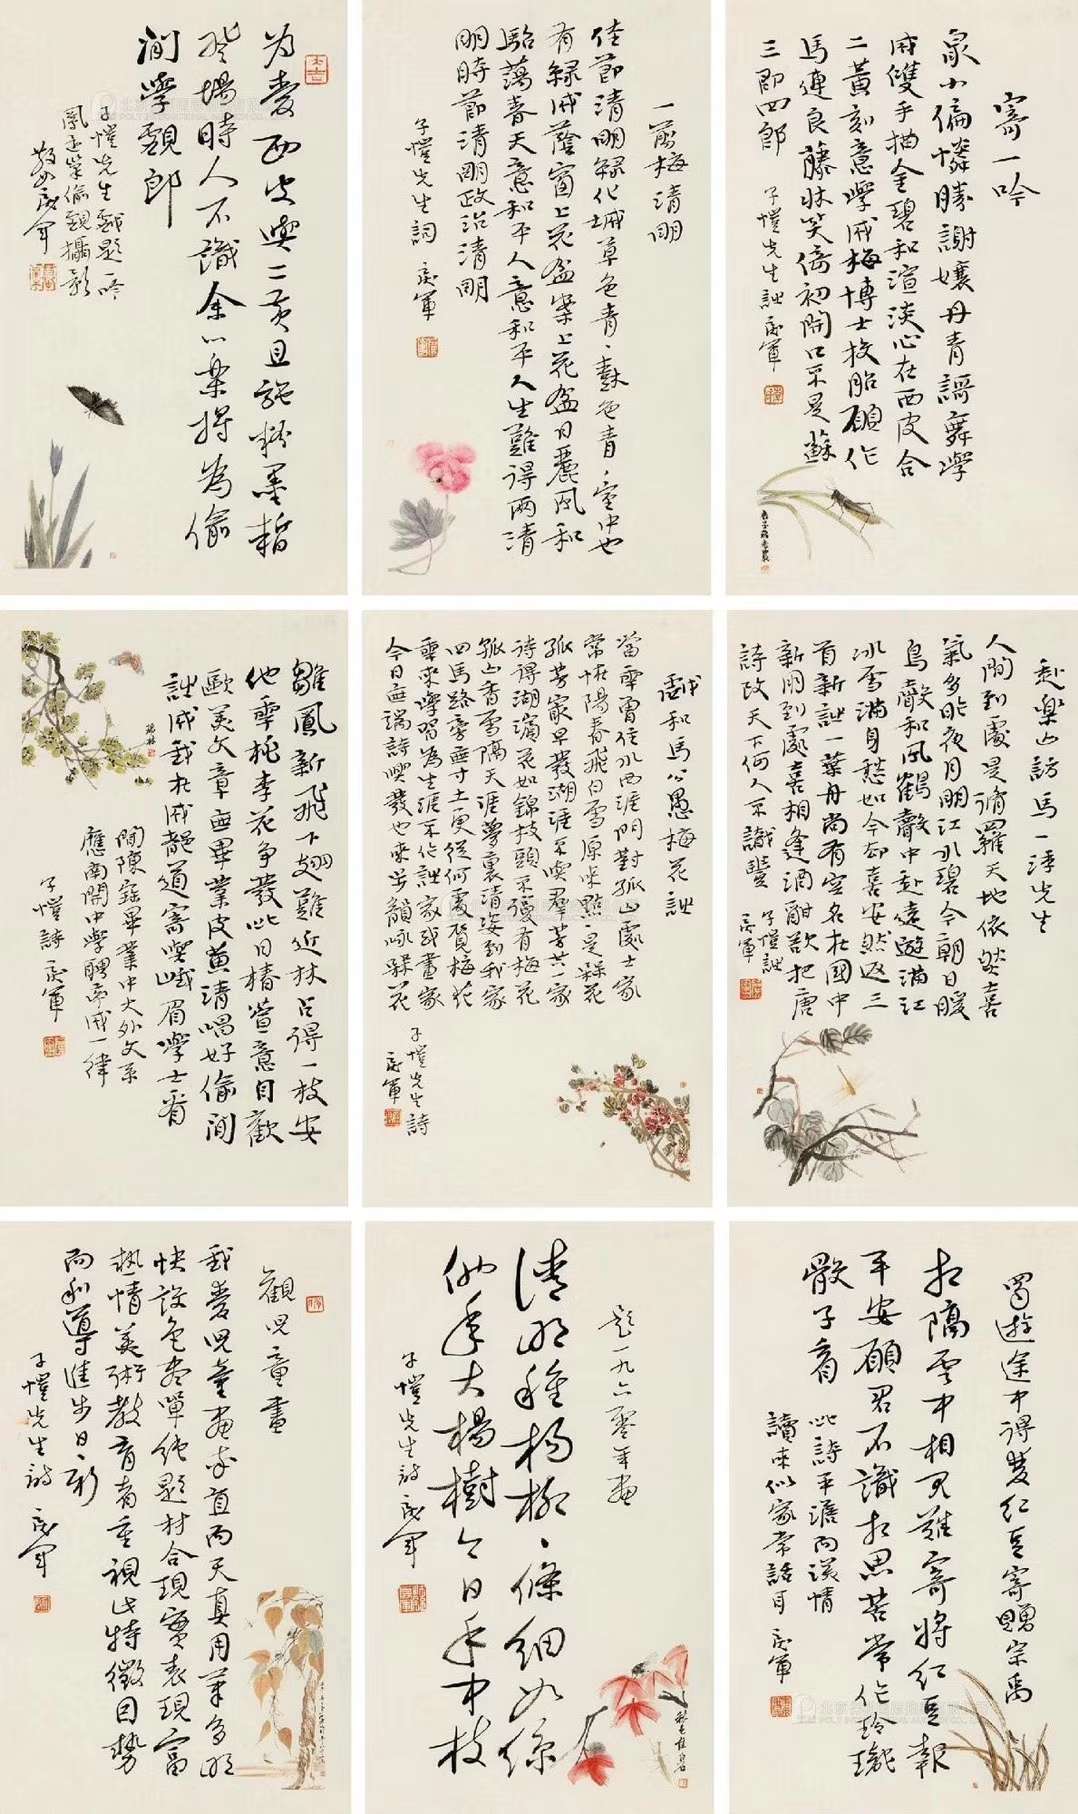 寄一吟
最小偏憐勝謝孃丹青歌舞學
成雙手描金碧和渲淡心在西皮合
二黃刻意學成梅博士投胎願作
馬連良藤牀笑倚初開口不是蘇
三即四郎
子愷先生詩
一剪梅清明
佳節清明綠化城草色青々樹色青々室中也
有綠成蔭窗上花盆案上花盆日麗風和
駘蕩春天意和平人意和平人生難得兩清
明時節清明政治清明
子愷先生詞
为愛西皮與二黃且施粉墨暫
登場時人不識余心樂將為偷
閒學
子愷先生戲題一吟
攝影
赴樂山訪馬一浮先生
人間到處是脩羅天地依然喜
氣多昨夜月明江水碧今朝日暖
鳥聲和風鶴聲中赴遠遊滿江
冰雪滿身愁如今却喜安然返三
首新詩一葉舟尚有空名在國中
新朋到處喜相逢酒酣欲把唐
詩改天下何人不識豐
子愷詩
戲和馬公愚梅花詩
當年曾住水西涯門對孤山處士家
常怪陽春飛白雪原來點々是槑花
孤芳最早發湖涯不與群芳共一家
待得湖濱花如錦枝頭不復有梅花
孤山香雪隔天涯夢裏清姿到我家
四馬路旁無寸土更從何處覓梅花
年來學習為生涯不作詩家或畫家
今日無端詩興發也來步韻詠槑花
子愷先生詩
雛鳳新飛下翅難近林占得一枝安
他年桃李花爭發此日椿萱意自歡
歐美文章無畢業皮黃清唱好偷閒
詩成我在成都道寄與峨眉學士看
聞陳寶畢業中大外文系
應南開中學聘喜成一律
子愷詩
蜀遊途中得雙紅豆寄贈宗禹
相隔雲中相見難寄將紅豆報
平安願君不識相思苦常作玲瓏
骰子看
此詩平淡而深情
讀來似家常話耳
題一九六零年畫
清明種楊柳々條細如絲
他年大楊樹今日手中枝
子愷先生詩
觀兒童畫
我愛兒童畫率直而天真用筆多明
快設色盡單純題材合現實表現富
熱情美術教育者重視此特徵因勢
而利導進步日々新
子愷先生詩